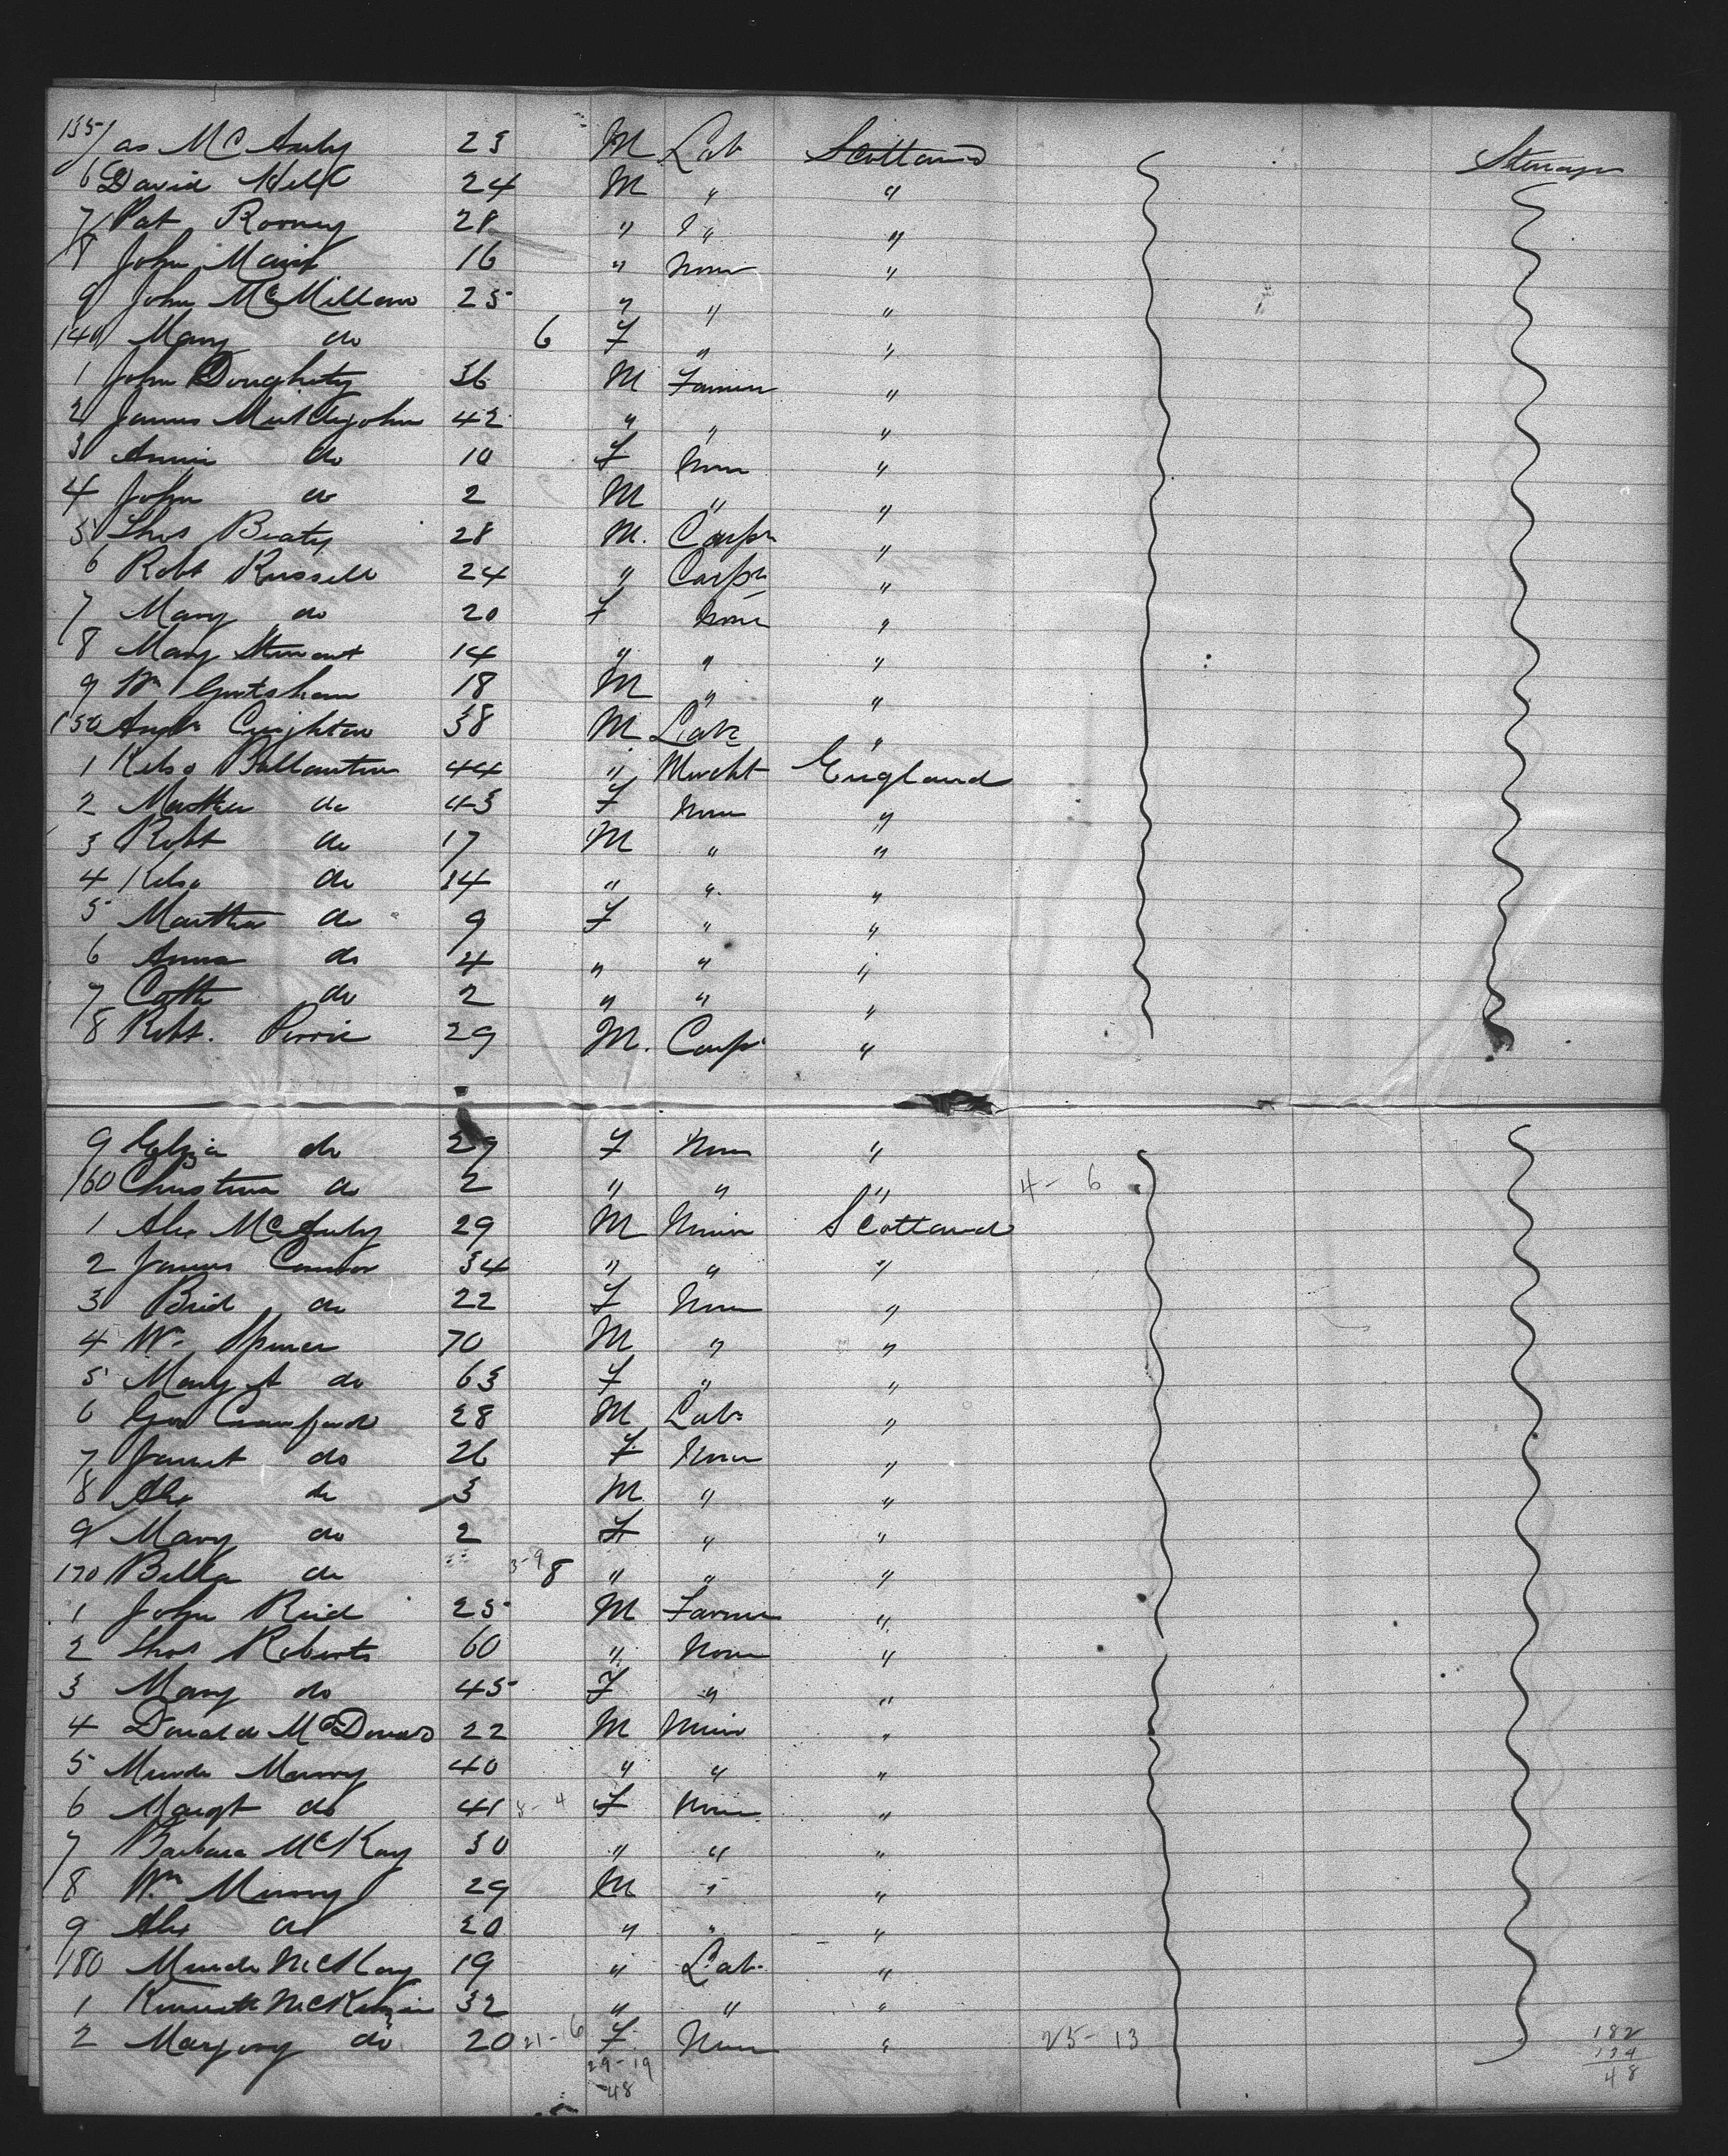 135 Jas McAuly 23 M Lab Scotland Steerage
6 David 24 M " "
7 Pat Rooney 28 " " "
8 John 16 " None "
9 John McMillan 25 " " "
140 Mary do 6 F " "
1 John Dougherty 36 M Farmer "
2 James Micklejohn 42 " " "
3 Annie do 10 F None "
4 John do 2 M " "
5 Thos Beaty 28 M. Carpr "
6 Robt Russell 24 " Carpr "
7 Mary do 20 F None "
8 Mary Stewart 14 " " "
9 Wm 18 M " "
150 Creighton 38 M Lab "
1 Kelso Ballantine 44 " Mercht England
2 Martha do 43 F None "
3 Robt do 17 M " "
4 Kelso do 14 " " "
5 Martha do 9 F " "
6 Anna do 4 " " "
7 Cath do 2 " " "
8 Robt. Perrie 29 M. Carpr "
9 Eliza do 29 F None "
160 Christina do 2 " " " 4 - 6
1 Alex McAuly 29 M Miner Scotland
2 James Connor 34 " " "
3 Brid do 22 F None "
4 Wm Spencer 70 M " "
5 Mary A do 63 F " "
6 Geo Crawford 28 M Lab "
7 Janet do 26 F None "
8 Alex do 3 M " "
9 Mary do 2 F " "
170 Bella do 3-9 8 " " "
1 John Reid 25 M Farmer "
2 Thos Roberts 60 " None "
3 Mary do 45 F " "
4 Donald McDonald 22 M Miner "
5 Murdo Murray 40 " " "
6 Margt do 41 8-4 F None "
7 Barbara McKay 30 " " "
8 Wm Murray 29 M " "
9 Alex do 20 " " "
180 Murdo McKay 19 " Lab "
1 Kenneth McKenzie 32 " " "
2 Marjory do 20 21-16 F None " 25-13
182
134
48
29-19
-48